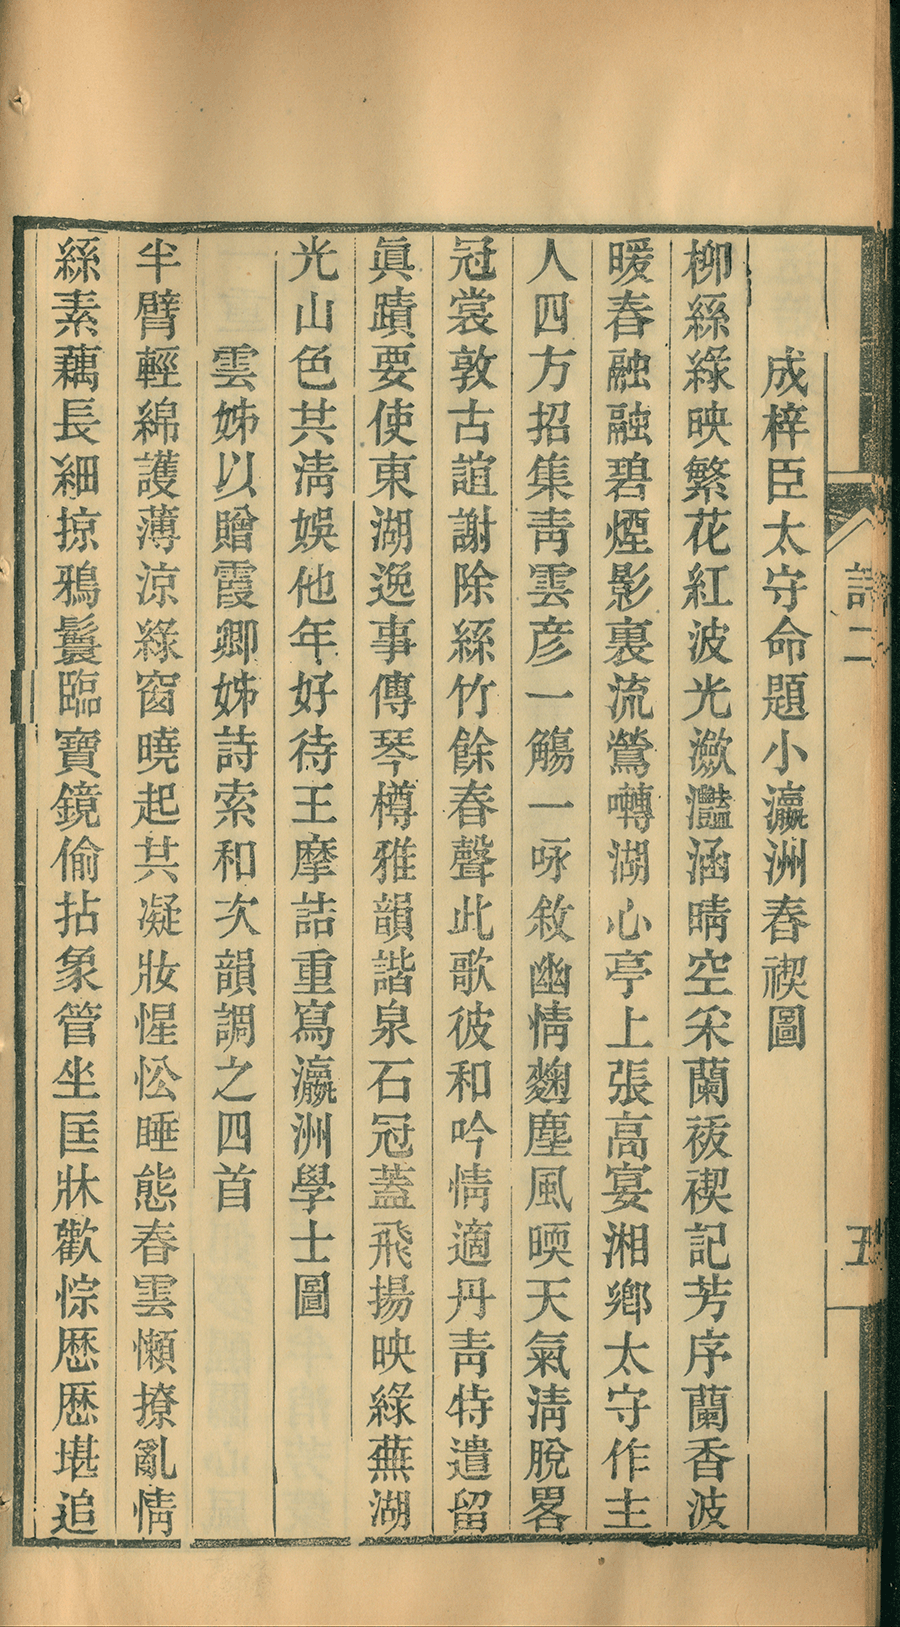 詩二
五
成梓臣太守命題小瀛洲春禊圖
柳絲綠映繁花紅波光瀲灩涵晴空采蘭祓禊記芳序蘭香波
暖春融融碧煙影裏流鶯囀湖心亭上張高宴湘鄉太守作主
人四方招集靑雲彥一觴一咏敘幽情麴塵風㬉天氣淸脫畧
冠裳敦古誼謝除絲竹餘春聲此歌彼和吟情適丹靑特遣留
眞蹟要使東湖逸事傳琴樽雅韻諧泉石冠蓋飛揚映綠蕪湖
光山色共淸娛他年好待王摩詰重寫瀛洲學士圖
雲姊以贈霞卿姊詩索和次韻調之四首
半臂輕綿護薄涼綠窗曉起共凝妝惺忪睡態春雲懶撩亂情
絲素藕長細掠鴉鬟臨寶鏡偷拈象管坐匡牀歡悰歷歷堪追